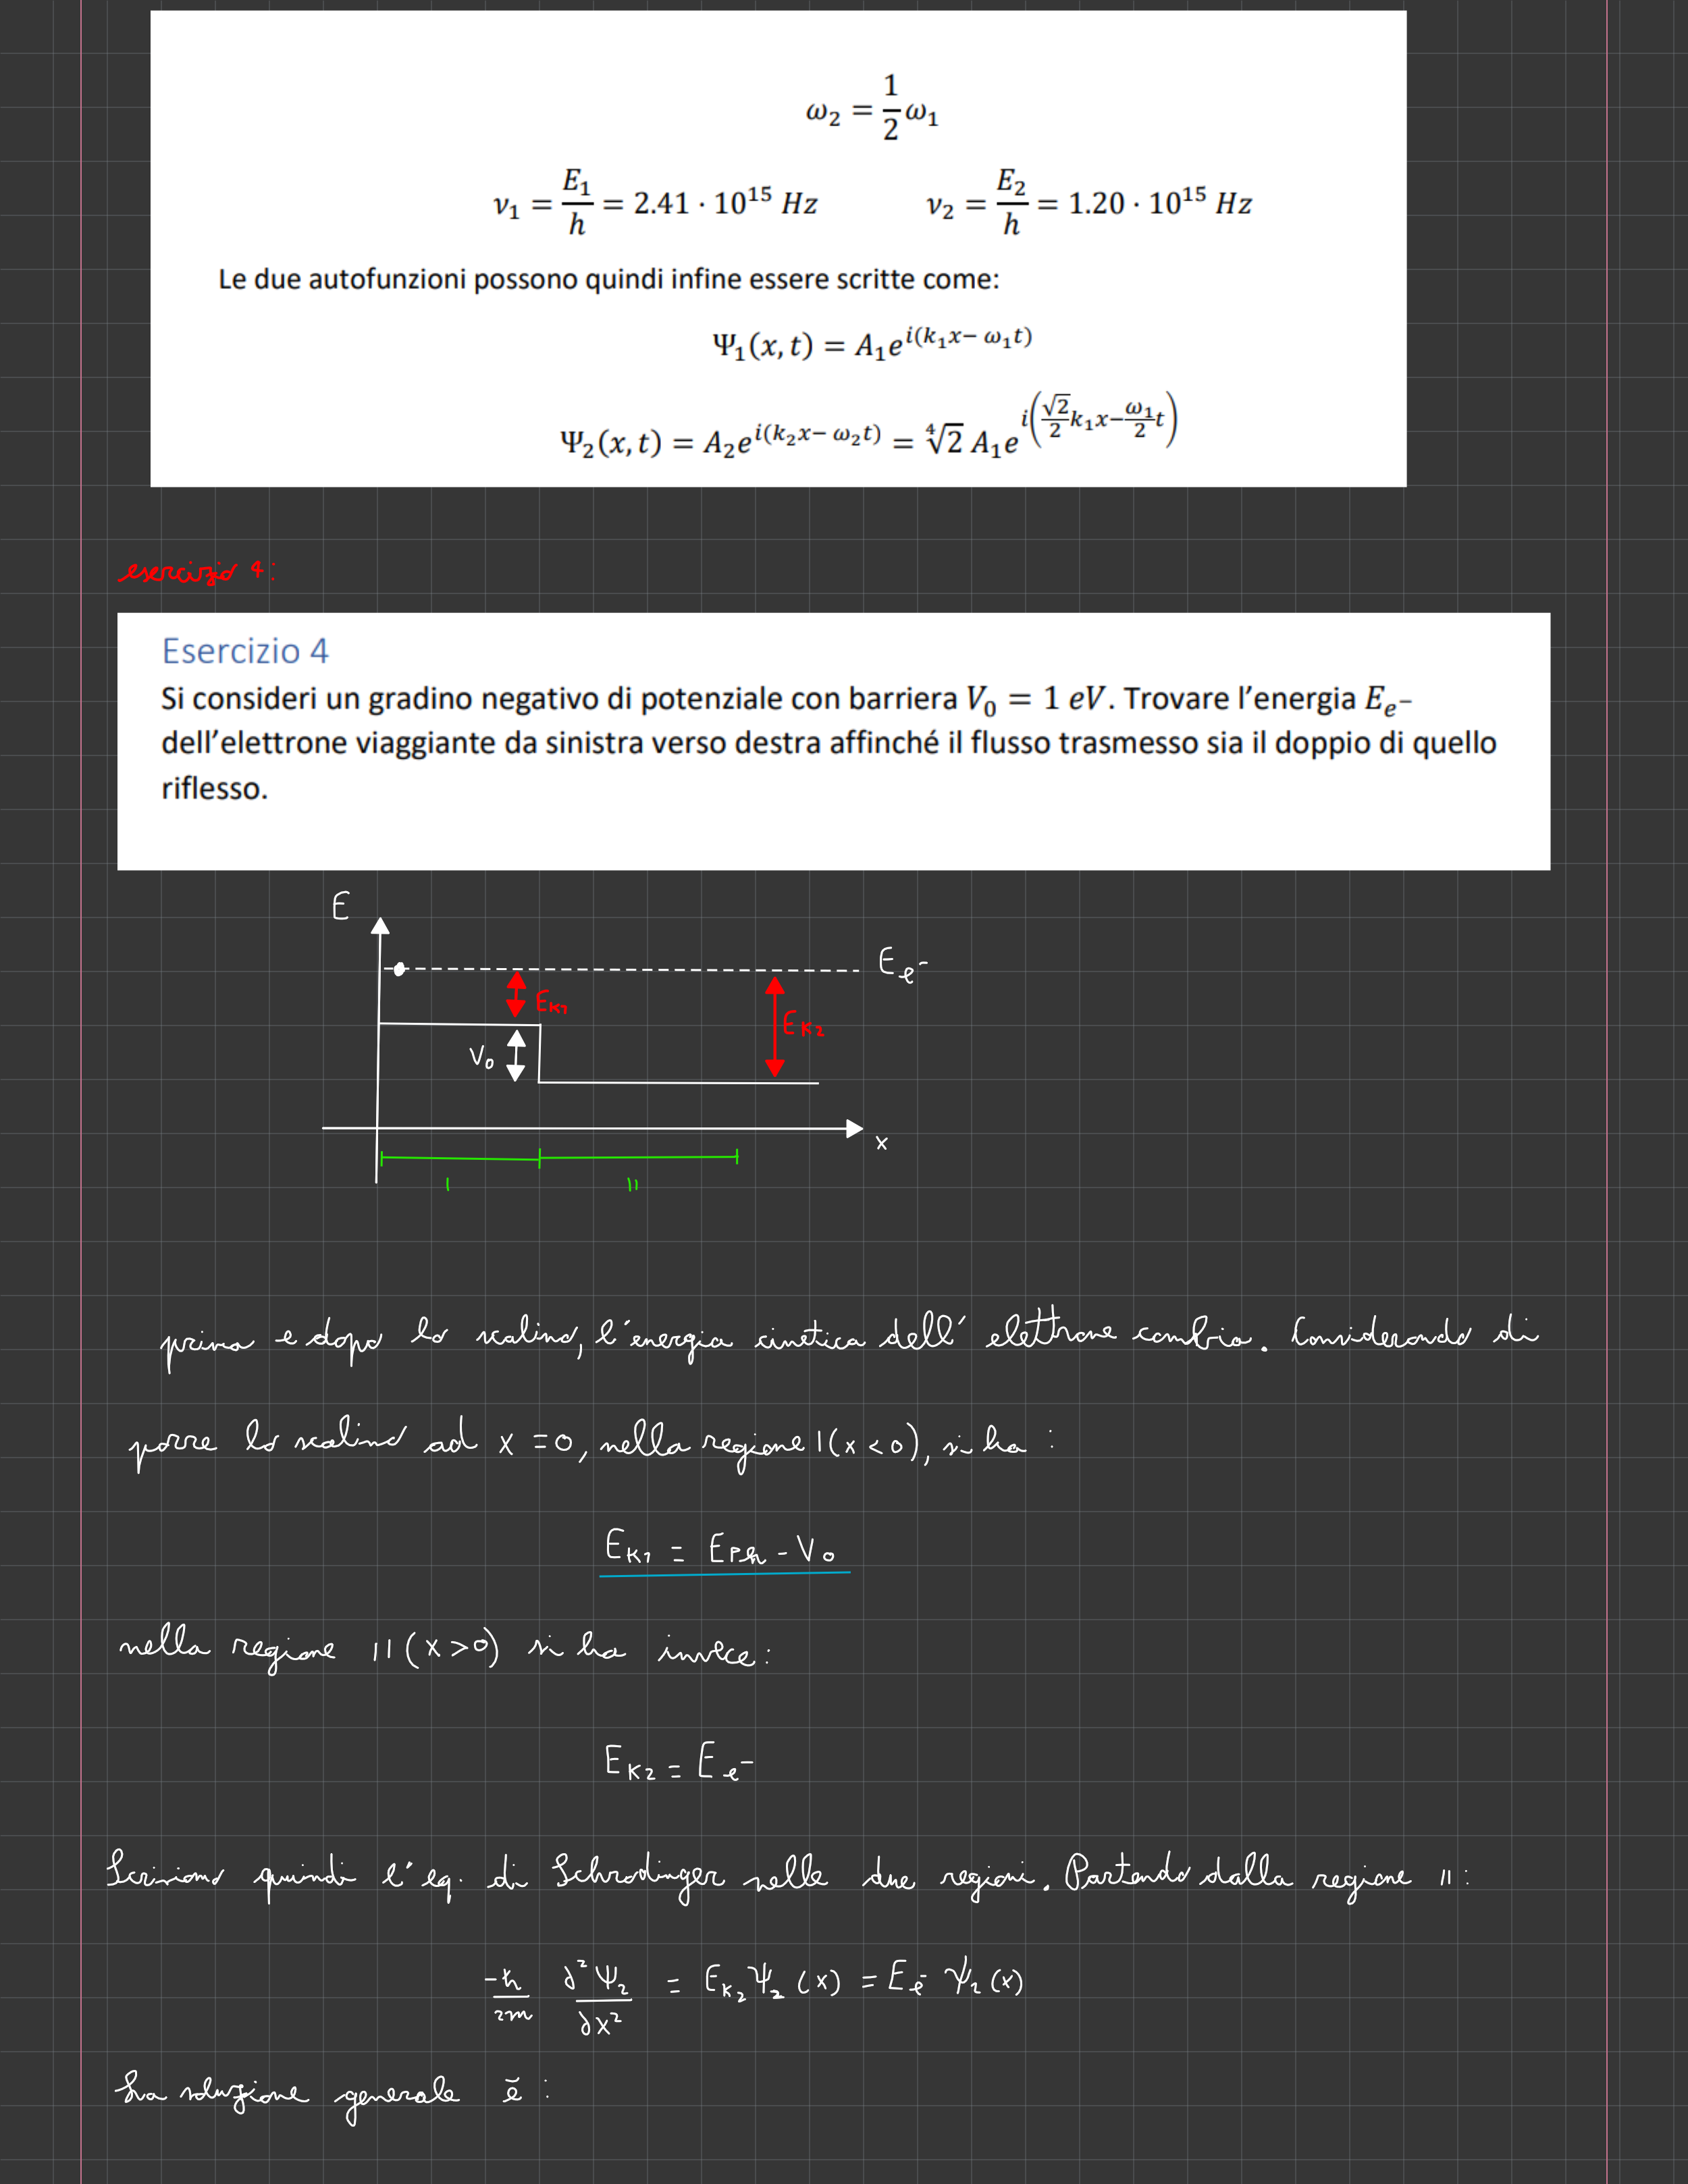 ω₂ = 1/2 ω₁
ν₁ = E₁/h = 2.41 · 10¹⁵ Hz    ν₂ = E₂/h = 1.20 · 10¹⁵ Hz
Le due autofunzioni possono quindi infine essere scritte come:
Ψ₁(x, t) = A₁e^{i(k₁x− ω₁t)}
Ψ₂(x, t) = A₂e^{i(k₂x− ω₂t)} = ∜2 A₁e^{i(√2/2 k₁x−ω₁/2 t)}
esercizio 4:
Esercizio 4
Si consideri un gradino negativo di potenziale con barriera V₀ = 1 eV. Trovare l'energia E_{e⁻}
dell'elettrone viaggiante da sinistra verso destra affinché il flusso trasmesso sia il doppio di quello
riflesso.
E
E_{e⁻}
E_{K1}
E_{K2}
V₀
x
I
II
prima e dopo lo scalino, l'energia cinetica dell'elettrone cambia. Considerando di
porre lo scalino ad x = 0, nella regione I (x < 0), si ha :
E_{K1} = E_{Ph} - V₀
nella regione II (x > 0) si ha invece :
E_{K2} = E_{e⁻}
Scriviamo quindi l'eq. di Schrodinger nelle due regioni. Partendo dalla regione II :
-ħ/2m ∂²Ψ₂/∂x² = E_{K2} Ψ₂ (x) = E_{e⁻} Ψ₂ (x)
La soluzione generale è :